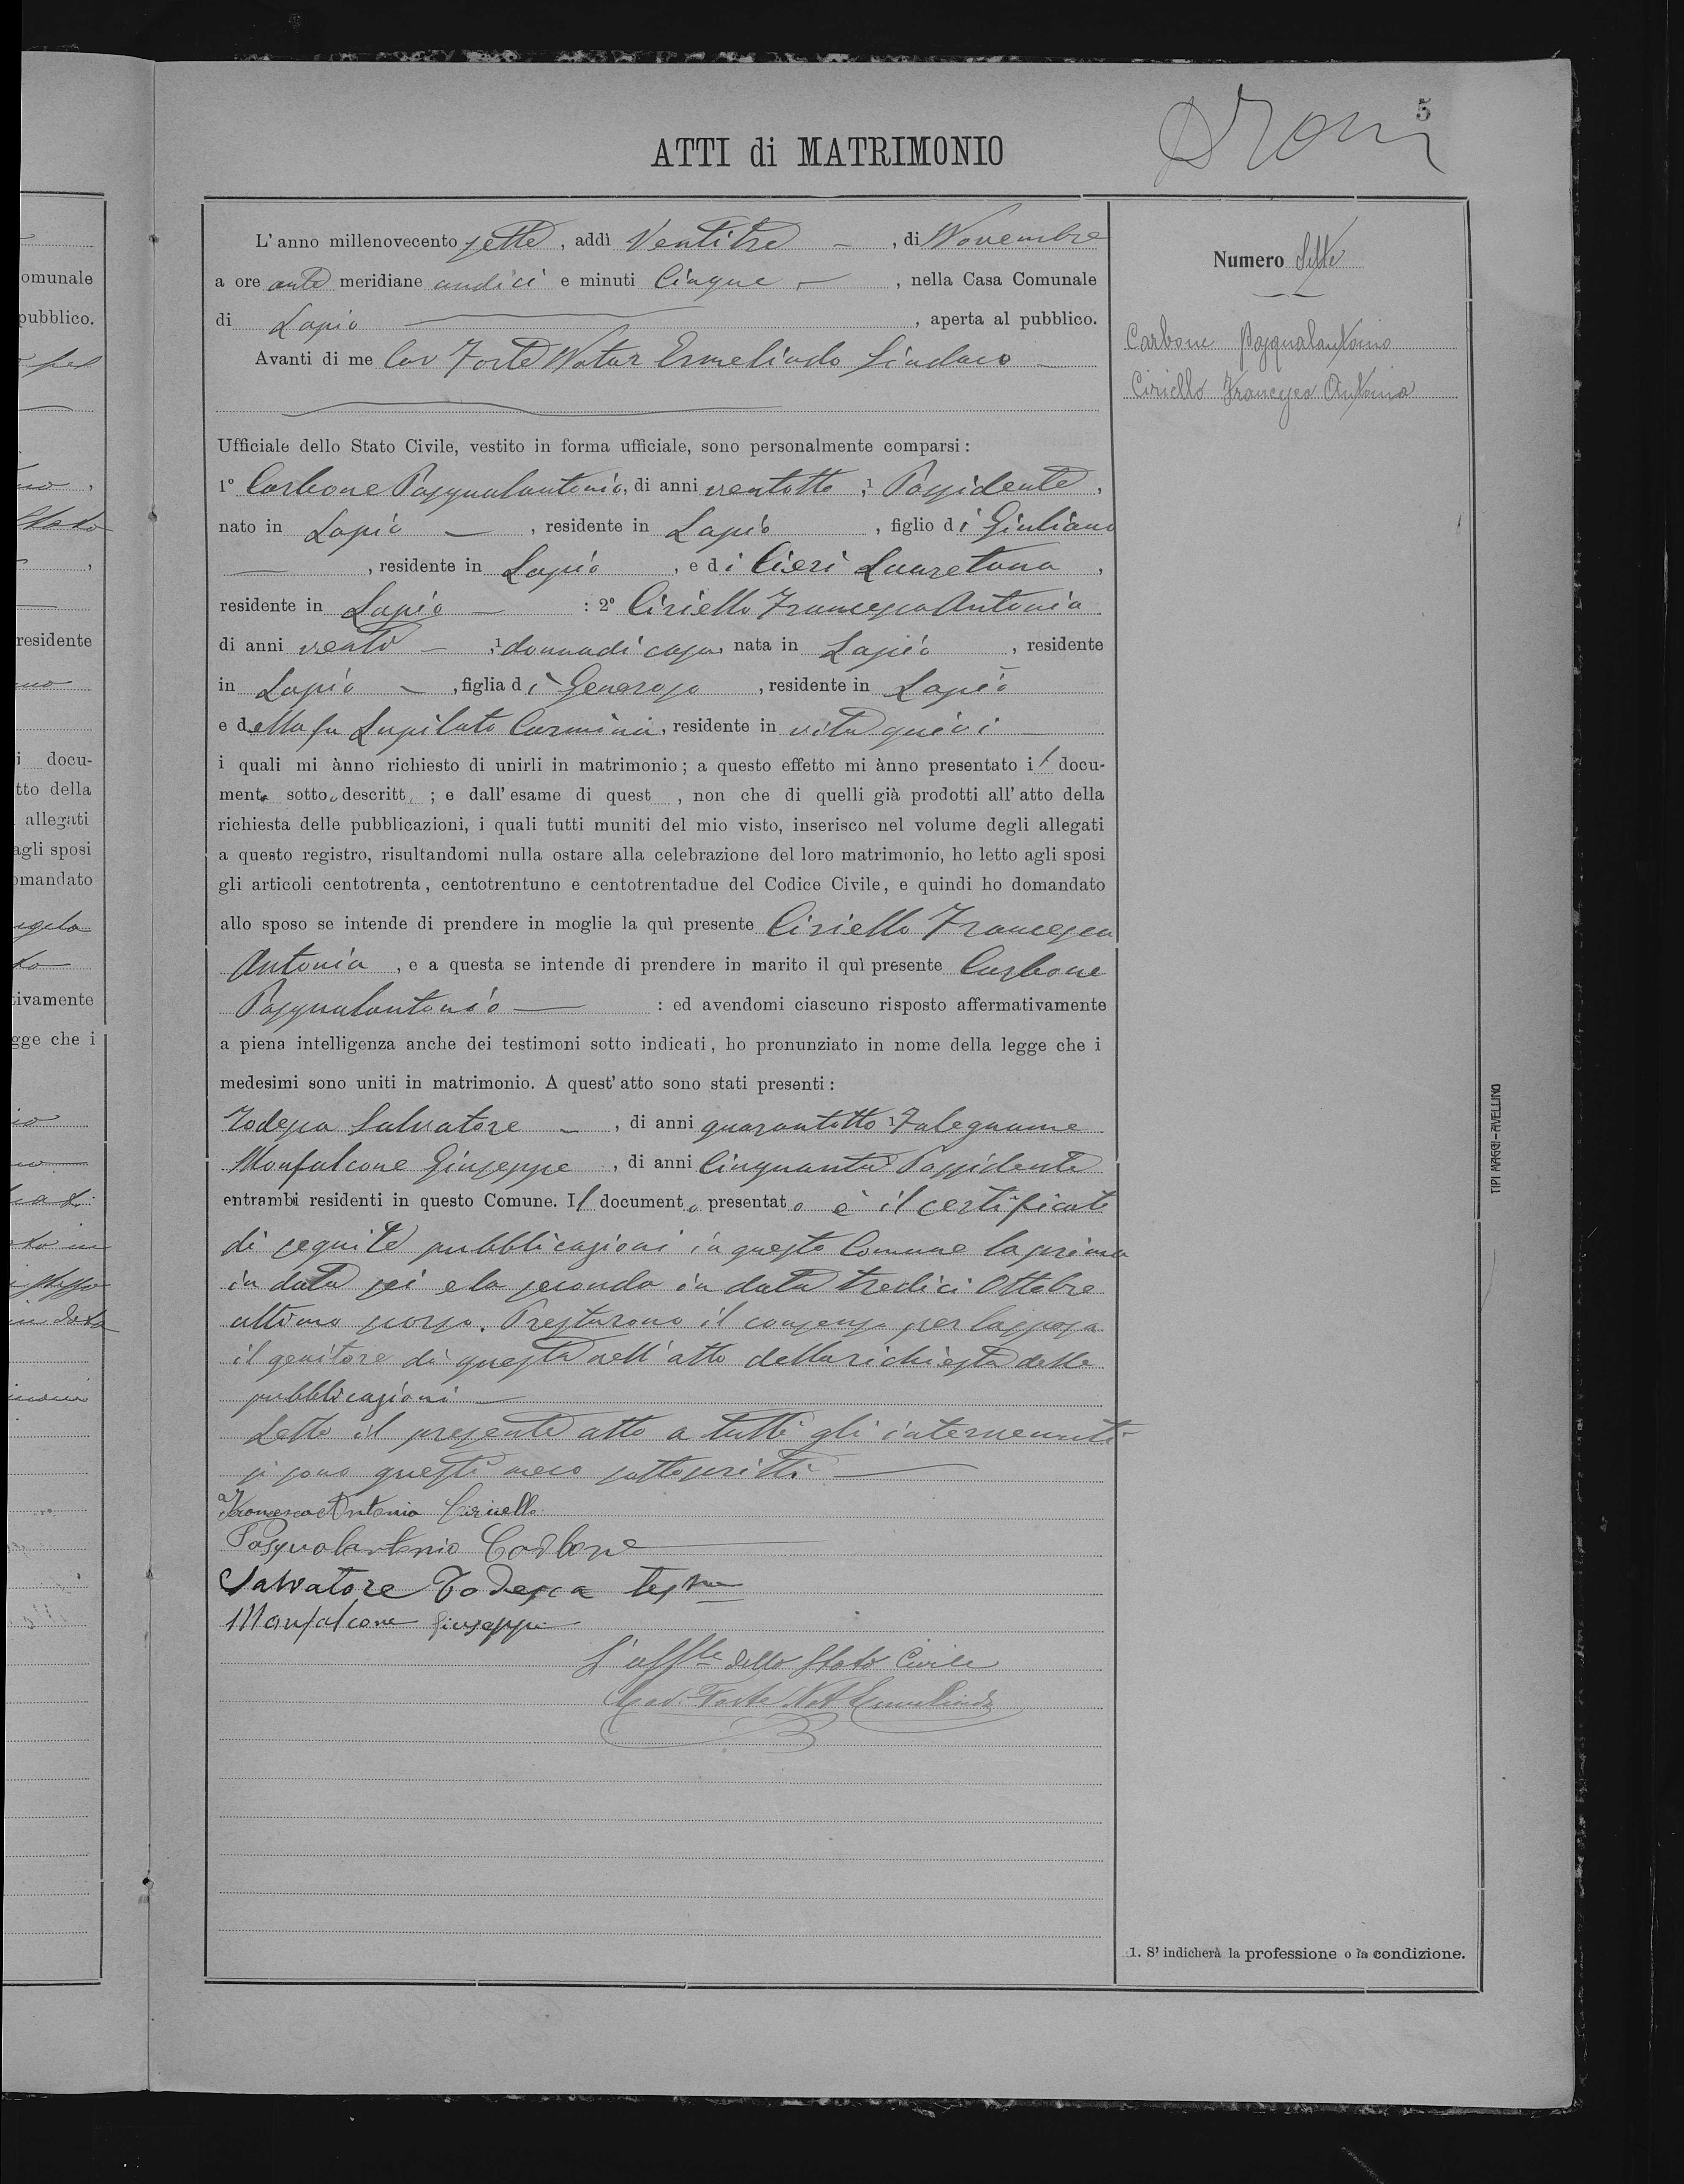 5
ATTI di MATRIMONIO
L'anno millenovecento sette, addì Ventitre, di Novembre
a ore ante meridiane undici e minuti Cinque, nella Casa Comunale
di Lapio, aperta al pubblico.
Avanti di me Cav Forte Notar Ermelindo Sindaco
Ufficiale dello Stato Civile, vestito in forma ufficiale, sono personalmente comparsi:
1° Carbone Pasqualantonio, di anni ventotto, 1 Possidente,
nato in Lapio, residente in Lapio, figlio di Giuliano
, residente in Lapio, e di Cieri Lauretana,
residente in Lapio: 2° Ciriello Francesca Antonia
di anni venti, 1 donna di casa, nata in Lapio, residente
in Lapio, figlia di Generoso, residente in Lapio
e della fu Lupilato Carmina, residente in vita quivi
i quali mi ànno richiesto di unirli in matrimonio; a questo effetto mi ànno presentato il docu-
mento sottodescritt ; e dall'esame di quest , non che di quelli già prodotti all'atto della
richiesta delle pubblicazioni, i quali tutti muniti del mio visto, inserisco nel volume degli allegati
a questo registro, risultandomi nulla ostare alla celebrazione del loro matrimonio, ho letto agli sposi
gli articoli centotrenta, centotrentuno e centotrentadue del Codice Civile, e quindi ho domandato
allo sposo se intende di prendere in moglie la quì presente Ciriello Francesca
Antonia, e a questa se intende di prendere in marito il quì presente Carbone
Pasqualantonio: ed avendomi ciascuno risposto affermativamente
a piena intelligenza anche dei testimoni sotto indicati, ho pronunziato in nome della legge che i
medesimi sono uniti in matrimonio. A quest'atto sono stati presenti:
Todesca Salvatore, di anni quarantotto 1 Falegname
Monfalcone Giuseppe, di anni Cinquanta Possidente
entrambi residenti in questo Comune. Il documento presentato è il certificato
di seguite pubblicazioni in questo Comune la prima
in data sei e la seconda in data tredici Ottobre
ultimo scorso. Prestarono il consenso per la sposa
il genitore di questa nell'atto della richiesta delle
pubblicazioni
Letto il presente atto a tutti gli intervenuti
si sono questi meco sottoscritti
Francesca Antonia Ciriello
Pasqualantonio Carbone
Salvatore Todesca testne
Monfalcone Giuseppe
L'uffle dello Stato Civile
Cav. Forte Not Ermelindo
Numero Sette
Carbone Pasqualantonio
Ciriello Francesca Antonia
1. S'indicherà la professione o la condizione.
TIPI MAGGI-AVELLINO
omunale
pubblico.
residente
i docu-
tto della
allegati
agli sposi
omandato
tivamente
gge che i